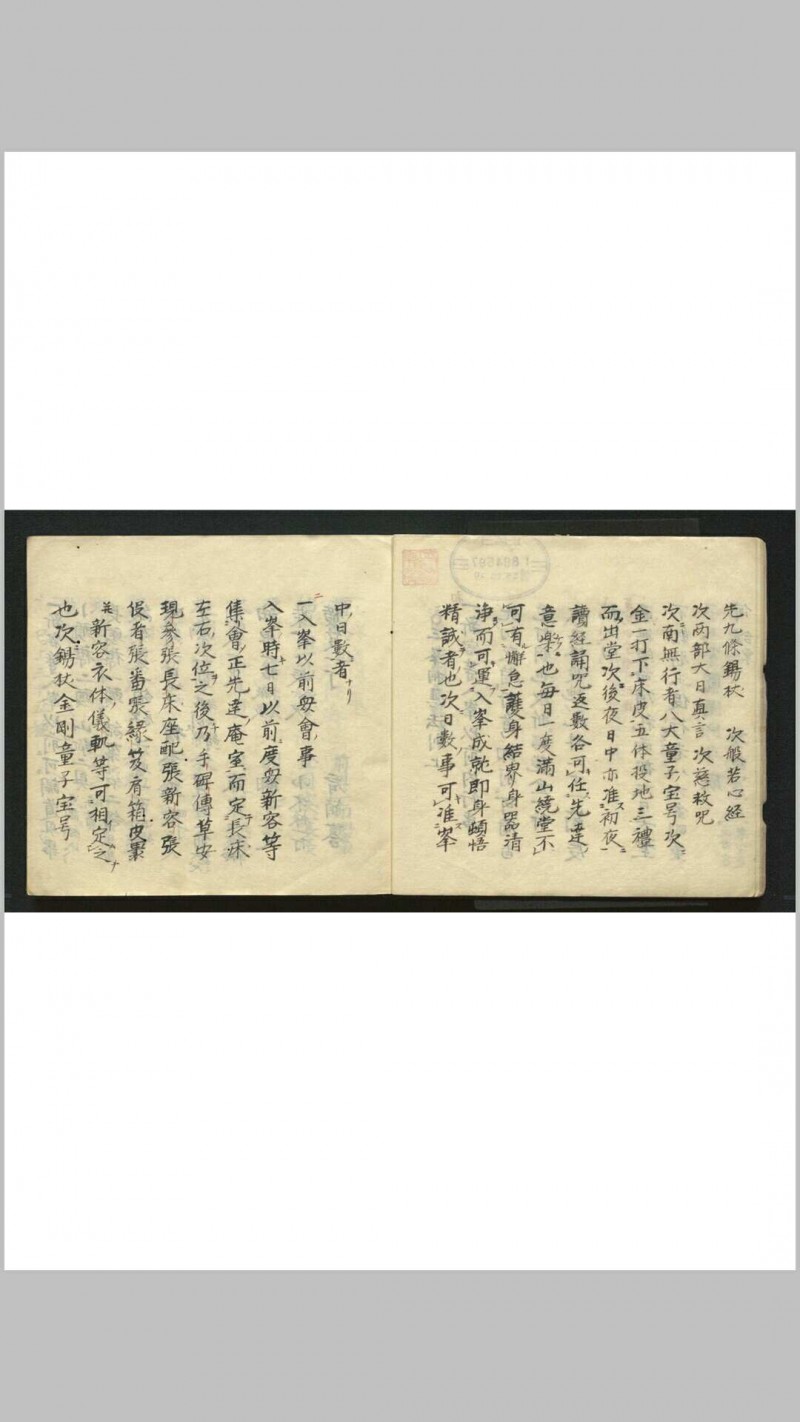 先九條錫杖　次般若心経
次两部大日真言　次慈救呪
次南無行者八大童子宝号次
金一打下床皮五体投地三禮
而出堂次後夜日中亦准初夜
讀経誦呪返数各可任先達
意楽也毎日一度満山繞堂不
可有懈怠護身結界身器清
浄而可運入峯成就即身頓悟
精誠者也次日数事可准峯
中日数者ナリ
一入峯以前安會事
入峯時七日以前度安新客等
集會正先達庵室而定長床
左右次位之後乃手碑傳草安
現参張長床座配張新客張
役者張番張緣笈肩箱皮果
并新客衣体儀軌等可相定之
也次錫杖金剛童子宝号